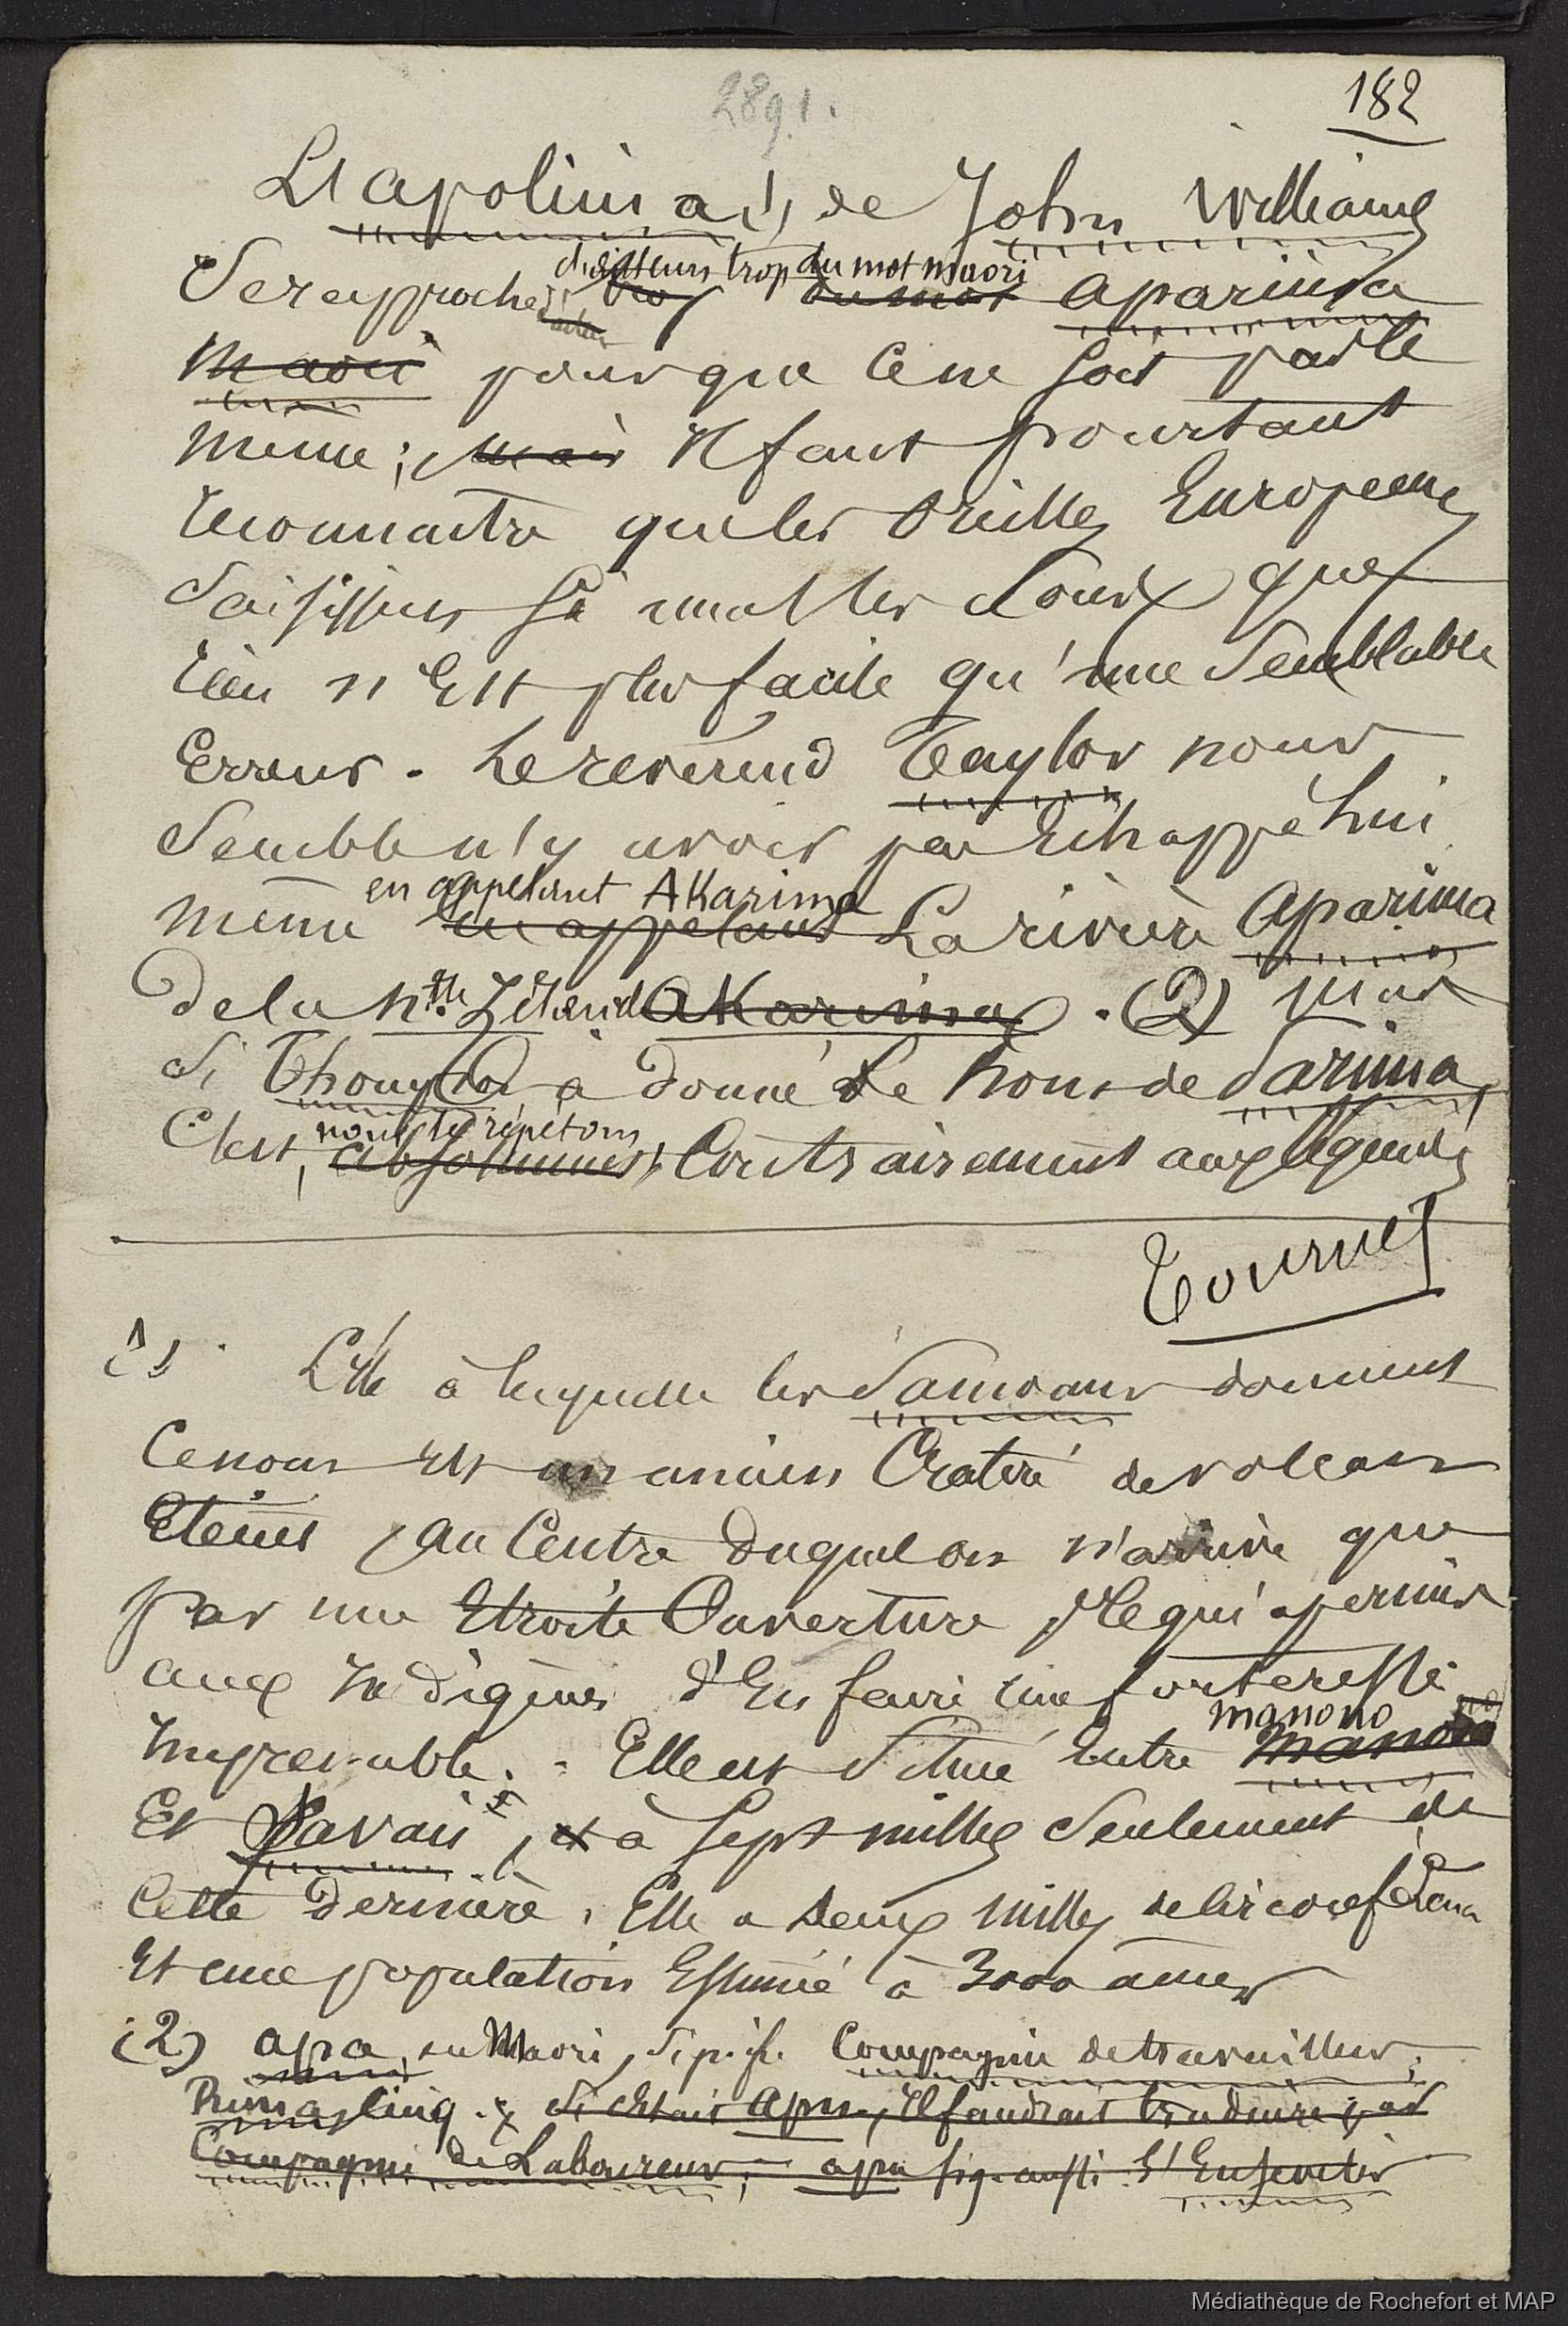 2891.
182
L'Apolima (1) de John Williams
d'ailleurs trop du mot maori
Se rapproche trop du mot Aparima
Maori pour que ce ne soit pas le
même ; mais Il faut pourtant
reconnaître que les oreilles Européennes
saisissent si mal les sons que
rien n'Est plus facile qu'une semblable
Erreur. Le révérend Taylor nous
semble n'y avoir pas Echappé lui
en appelant AKarima
même en appelant La rivière Aparima
de la Nlle Zélande AKarima. (2) Mais
si Thompson a donné le nom de Sarima,
nous le répétons
C'est, absolument, Contrairement aux légendes
Tournez
(1) L'Ile à laquelle les Samoans donnent
ce nom Est un ancien Cratère de volcan
Eteint, au Centre duquel on n'arrive que
par une Etroite Ouverture, ce qui a permis
aux Indigènes d'En faire une forteresse
manono
Imprenable. Elle est située Entre Manono
Et Savaii, et à sept milles seulement de
cette dernière. Elle a deux milles de circonférence
Et une population Estimée à 3000 âmes
(2) apa, en Maori, signifie Compagnie de travailleurs ;
Rima, cinq. Si c'Etait Apu, Il faudrait traduire par
Compagnie de Laboureurs ; apu sig. aussi
Médiathèque de Rochefort et MAP